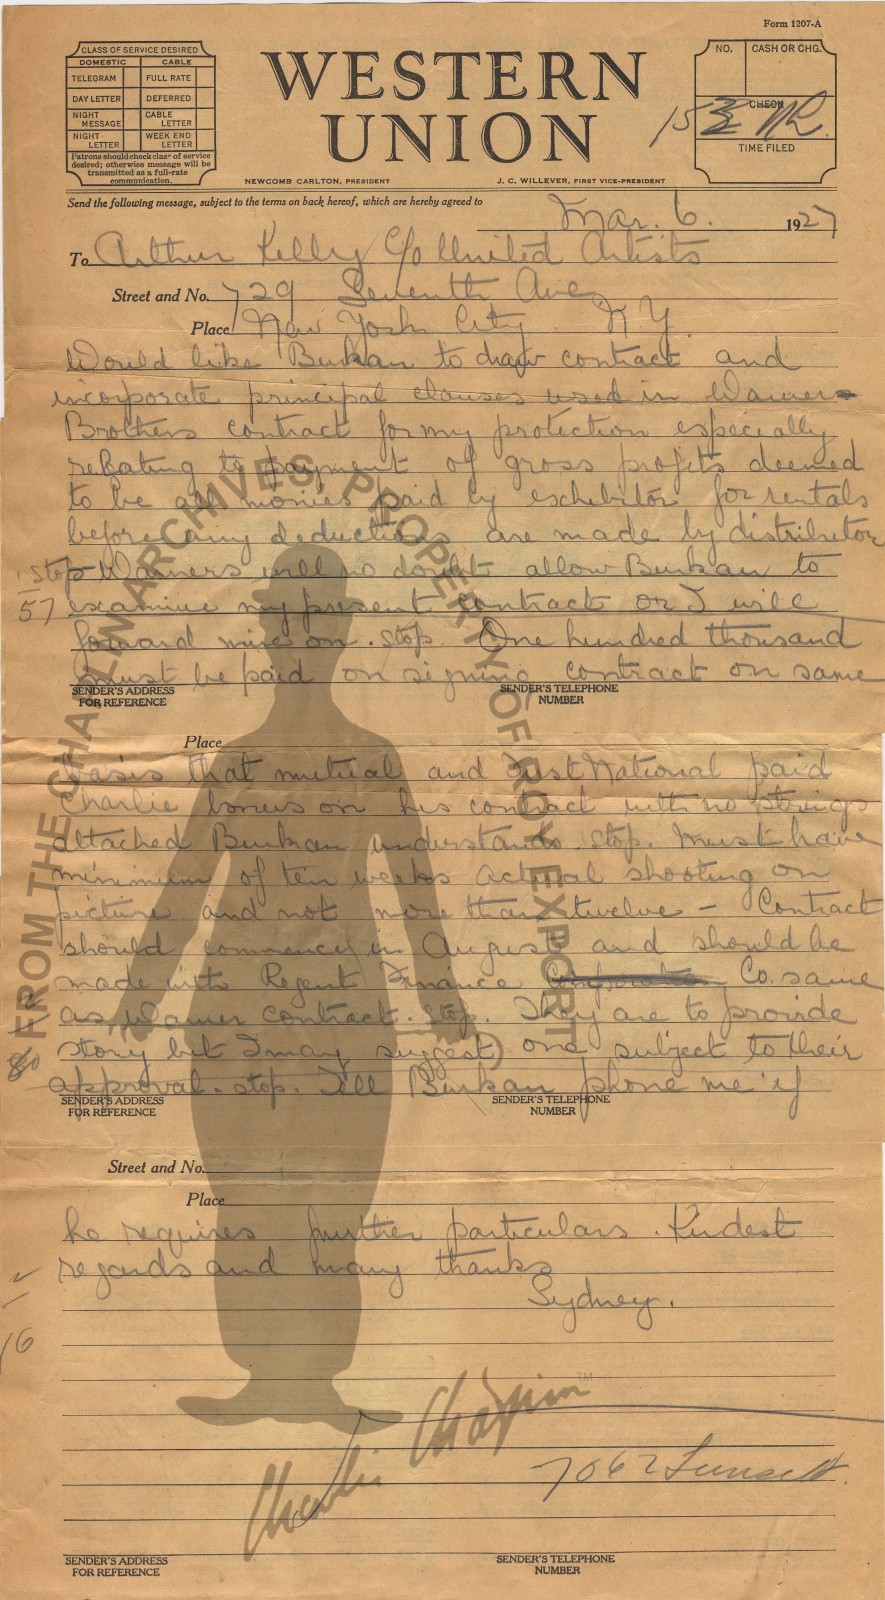 Form 1207-A
CLASS OF SERVICE DESIRED
DOMESTIC CABLE
TELEGRAM FULL RATE
DAY LETTER DEFERRED
NIGHT MESSAGE CABLE LETTER
NIGHT LETTER WEEK END LETTER
Patrons should check class of service
desired; otherwise message will be
transmitted as a full-rate
communication.
WESTERN
UNION
NEWCOMB CARLTON, PRESIDENT J. C. WILLEVER, FIRST VICE-PRESIDENT
NO. CASH OR CHG.
CHECK
153 NL
TIME FILED
Send the following message, subject to the terms on back hereof, which are hereby agreed to
Mar. 6. 1927
To Arthur Kelly C/o United Artists
Street and No. 729 Seventh Ave
Place New York City N Y
Would like Burkan to draw contract and
incorporate principal clauses used in Warner
Brothers contract for my protection especially
relating to payment of gross profits deemed
to be all monies paid by exhebitor for rentals
before any deductions are made by distributor
stop Warners will no doubt allow Burkan to
57 examine my present contract or I will
forward mine on. stop. One hundred thousand
must be paid on signing contract on same
SENDER'S ADDRESS FOR REFERENCE SENDER'S TELEPHONE NUMBER
Place
basis that mutual and First National paid
Charlie bonus on his contract with no strings
attached Burkan understands. stop. Must have
minimum of ten weeks actual shooting on
picture and not more than twelve - Contract
should commence in August and should be
made with Regent Finance Co. same
as Warner contract. stop. They are to provide
story but I may suggest one subject to their
80 approval. stop. Tell Burkan phone me if
SENDER'S ADDRESS FOR REFERENCE SENDER'S TELEPHONE NUMBER
Street and No.
Place
he requires further particulars. Kindest
regards and many thanks
Sydney.
16
7062 Sunset
SENDER'S ADDRESS FOR REFERENCE SENDER'S TELEPHONE NUMBER
FROM THE CHAPLIN ARCHIVES PROPERTY OF ROY EXPORT
Charlie Chaplin TM